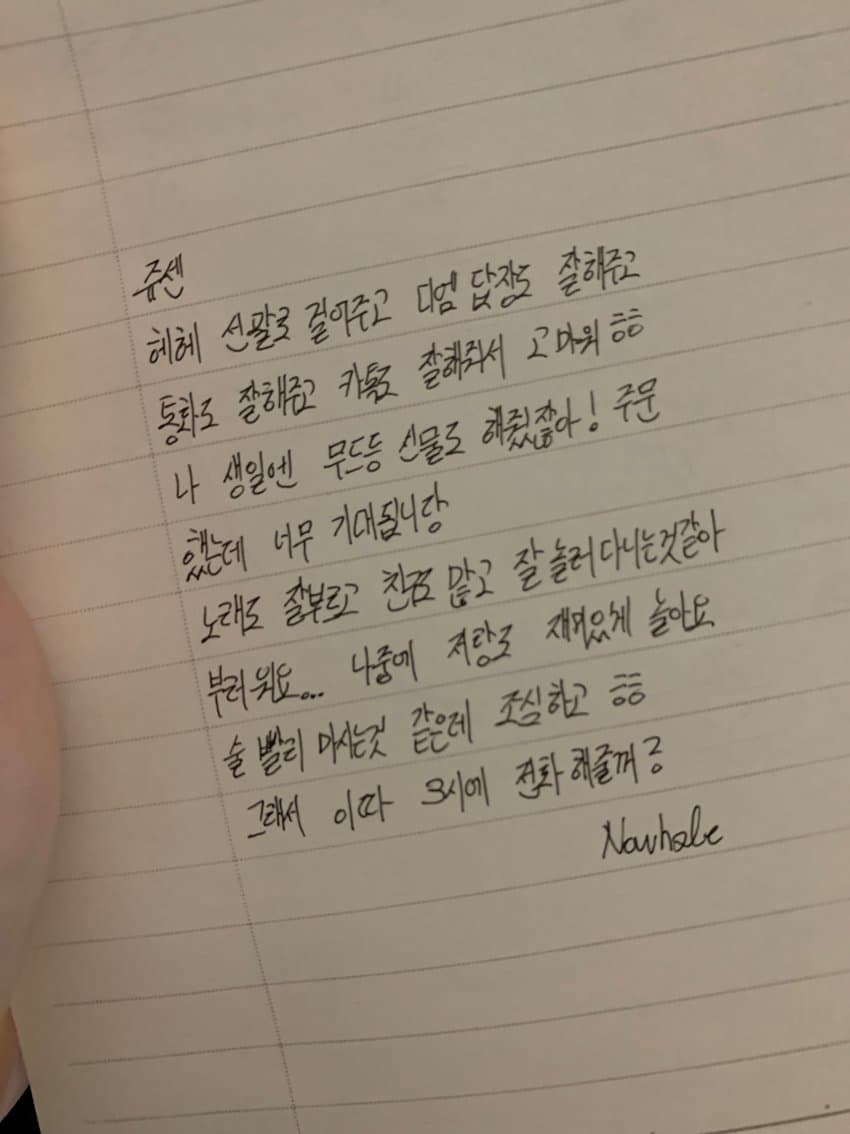 쥬센
헤헤 선팔로 걸어주고 디엠 답장도 잘해주고
통화도 잘해주고 카톡도 잘해줘서 고마워 ㅎㅎ
나 생일엔 무드등 선물도 해줬잖아! 주문
했는데 너무 기대됩니당
노래도 잘부르고 친구도 많고 잘 놀러다니는것같아
부러워요... 나중에 저랑도 재미있게 놀아요
술 빨리 마시는것 같은데 조심하고 ㅎㅎ
그래서 이따 3시에 전화해줄꺼 ?